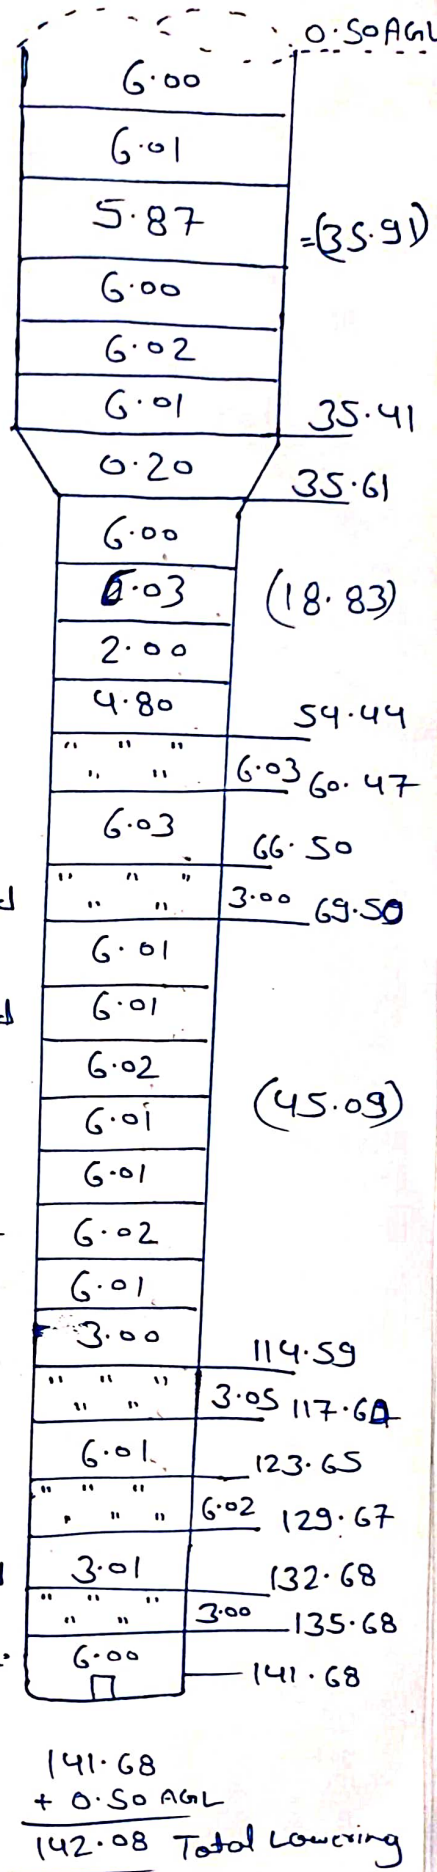 0.50 AGL
6.00
6.01
5.87 =(35.91)
6.00
6.02
6.01 35.41
0.20 35.61
6.00
6.03 (18.83)
2.00
4.80 54.44
6.03 60.47
6.03 66.50
3.00 69.50
6.01
6.01
6.02 (45.09)
6.01
6.01
6.02
6.01
3.00 114.59
3.05 117.64
6.01 123.65
6.02 129.67
3.01 132.68
3.00 135.68
6.00 141.68
141.68
+ 0.50 AGL
142.08 Total Lowering